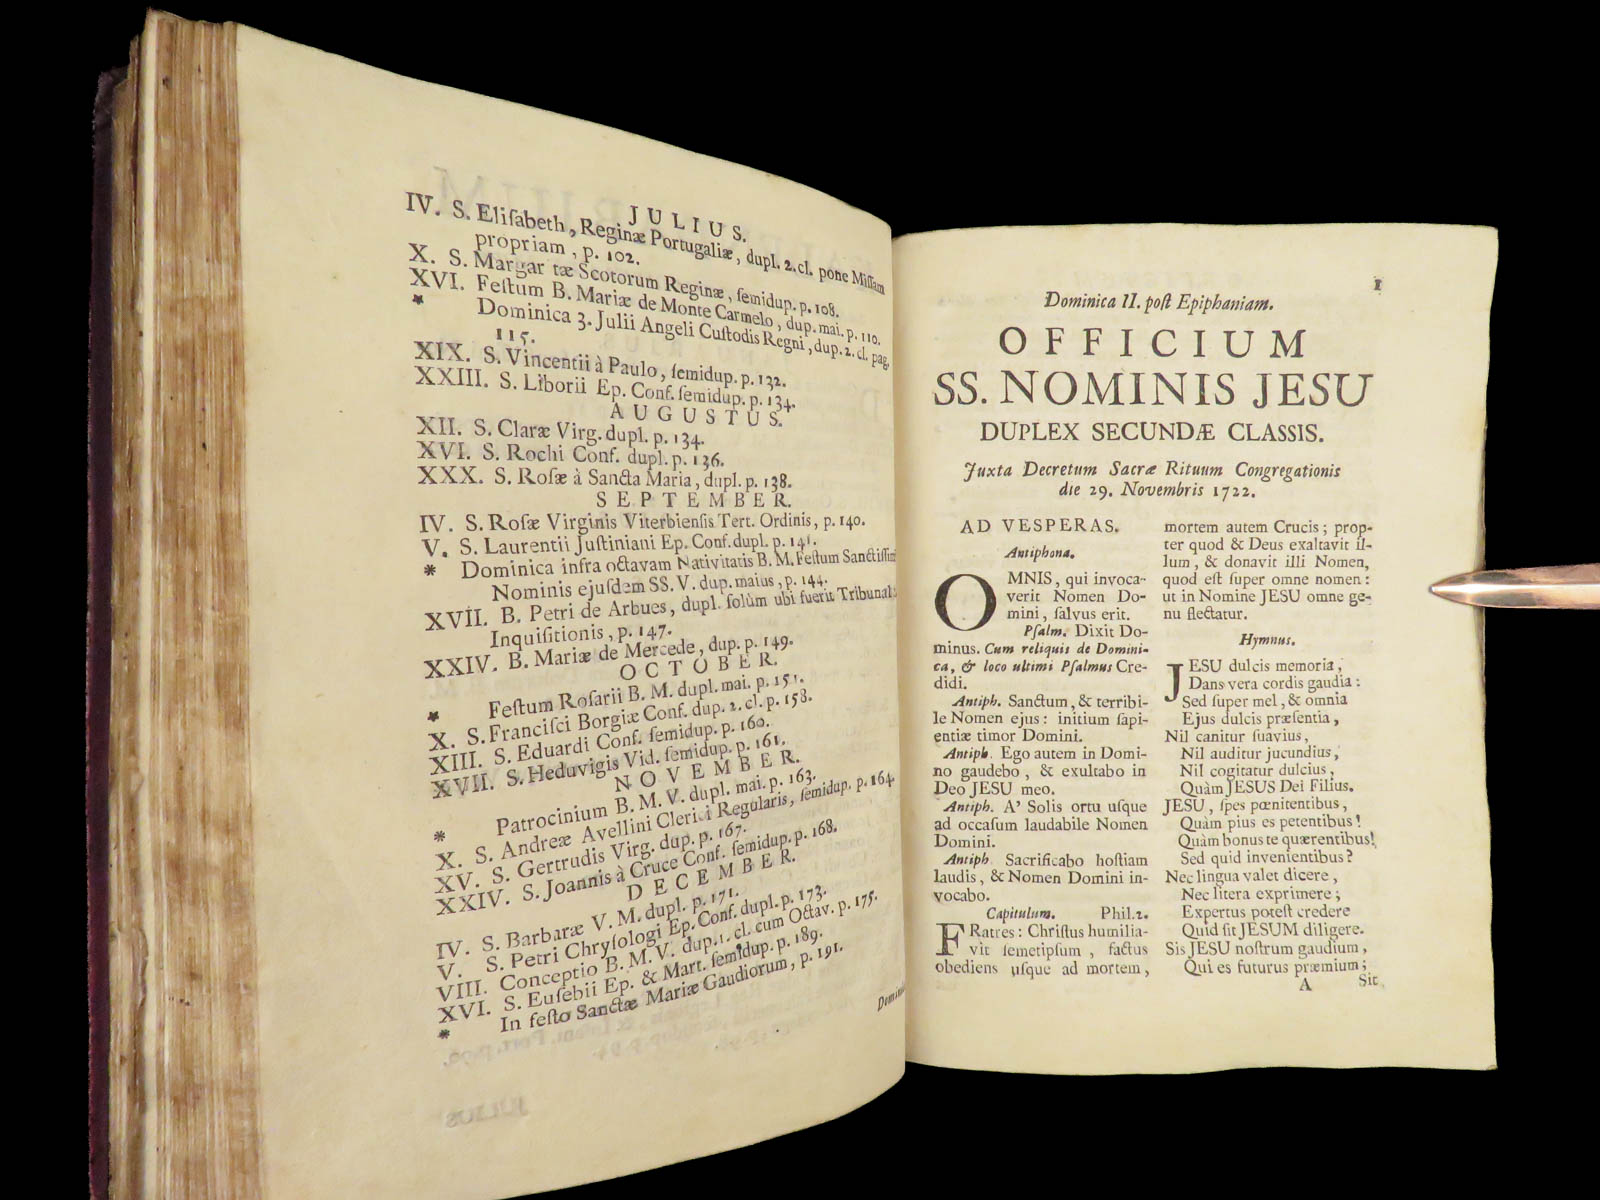 JULIUS.
IV. S. Eliſabeth, Reginæ Portugaliæ, dupl. 2. cl. pone Miſſam
propriam, p. 102.
X. S. Margar tæ Scotorum Reginæ, ſemidup. p. 108.
XVI. Feſtum B. Mariæ de Monte Carmelo, dup. mai. p. 110.
* Dominica 3. Julii Angeli Cuſtodis Regni, dup. 2. cl. pag.
115.
XIX. S. Vincentii à Paulo, ſemidup. p. 132.
XXIII. S. Liborii Ep. Conf. ſemidup. p. 134.
AUGUSTUS.
XII. S. Claræ Virg. dupl. p. 134.
XVI. S. Rochi Conf. dupl. p. 136.
XXX. S. Roſæ à Sancta Maria, dupl. p. 138.
SEPTEMBER.
IV. S. Roſæ Virginis Viterbienſis Tert. Ordinis, p. 140.
V. S. Laurentii Juſtiniani Ep. Conf. dupl. p. 141.
* Dominica infra octavam Nativitatis B. M. Feſtum Sanctiſſimi
Nominis ejuſdem SS. V. dup. maius, p. 144.
XVII. B. Petri de Arbues, dupl. ſolùm ubi fuerit Tribunal
Inquiſitionis, p. 147.
XXIV. B. Mariæ de Mercede, dup. p. 149.
OCTOBER.
* Feſtum Roſarii B. M. dupl. mai. p. 151.
X. S. Franciſci Borgiæ Conf. dup. 2. cl. p. 158.
XIII. S. Eduardi Conf. ſemidup. p. 160.
XVII. S. Heduvigis Vid. ſemidup. p. 161.
NOVEMBER.
* Patrocinium B. M. V. dupl. mai. p. 163.
X. S. Andreæ Avellini Clerici Regularis, ſemidup. p. 164
XV. S. Gertrudis Virg. dup. p. 167.
XXIV. S. Joannis à Cruce Conf. ſemidup. p. 168.
DECEMBER.
IV. S. Barbaræ V. M. dupl. p. 171.
V. S. Petri Chryſologi Ep. Conf. dupl. p. 173.
VIII. Conceptio B. M. V. dup. 1. cl. cum Octav. p. 175.
XVI. S. Euſebii Ep. & Mart. ſemidup. p. 189.
* In feſto Sanctæ Mariæ Gaudiorum, p. 191.
1
Dominica II. poſt Epiphaniam.
OFFICIUM
SS. NOMINIS JESU
DUPLEX SECUNDÆ CLASSIS.
Juxta Decretum Sacræ Rituum Congregationis
die 29. Novembris 1722.
AD VESPERAS.
Antiphona.
OMNIS, qui invoca-
verit Nomen Do-
mini, ſalvus erit.
Pſalm. Dixit Do-
minus. Cum reliquis de Domini-
ca, & loco ultimi Pſalmus Cre-
didi.
Antiph. Sanctum, & terribi-
le Nomen ejus: initium ſapi-
entiæ timor Domini.
Antiph. Ego autem in Domi-
no gaudebo, & exultabo in
Deo JESU meo.
Antiph. A' Solis ortu uſque
ad occaſum laudabile Nomen
Domini.
Antiph. Sacrificabo hoſtiam
laudis, & Nomen Domini in-
vocabo.
Capitulum. Phil. 2.
FRatres: Chriſtus humilia-
vit ſemetipſum, factus
obediens uſque ad mortem,
mortem autem Crucis; prop-
ter quod & Deus exaltavit il-
lum, & donavit illi Nomen,
quod eſt ſuper omne nomen:
ut in Nomine JESU omne ge-
nu flectatur.
Hymnus.
JESU dulcis memoria,
Dans vera cordis gaudia:
Sed ſuper mel, & omnia
Ejus dulcis præſentia,
Nil canitur ſuavius,
Nil auditur jucundius,
Nil cogitatur dulcius,
Quàm JESUS Dei Filius.
JESU, ſpes pœnitentibus,
Quàm pius es petentibus!
Quàm bonus te quærentibus!
Sed quid invenientibus?
Nec lingua valet dicere,
Nec litera exprimere;
Expertus poteſt credere
Quid ſit JESUM diligere.
Sis JESU noſtrum gaudium,
Qui es futurus præmium;
A Sit